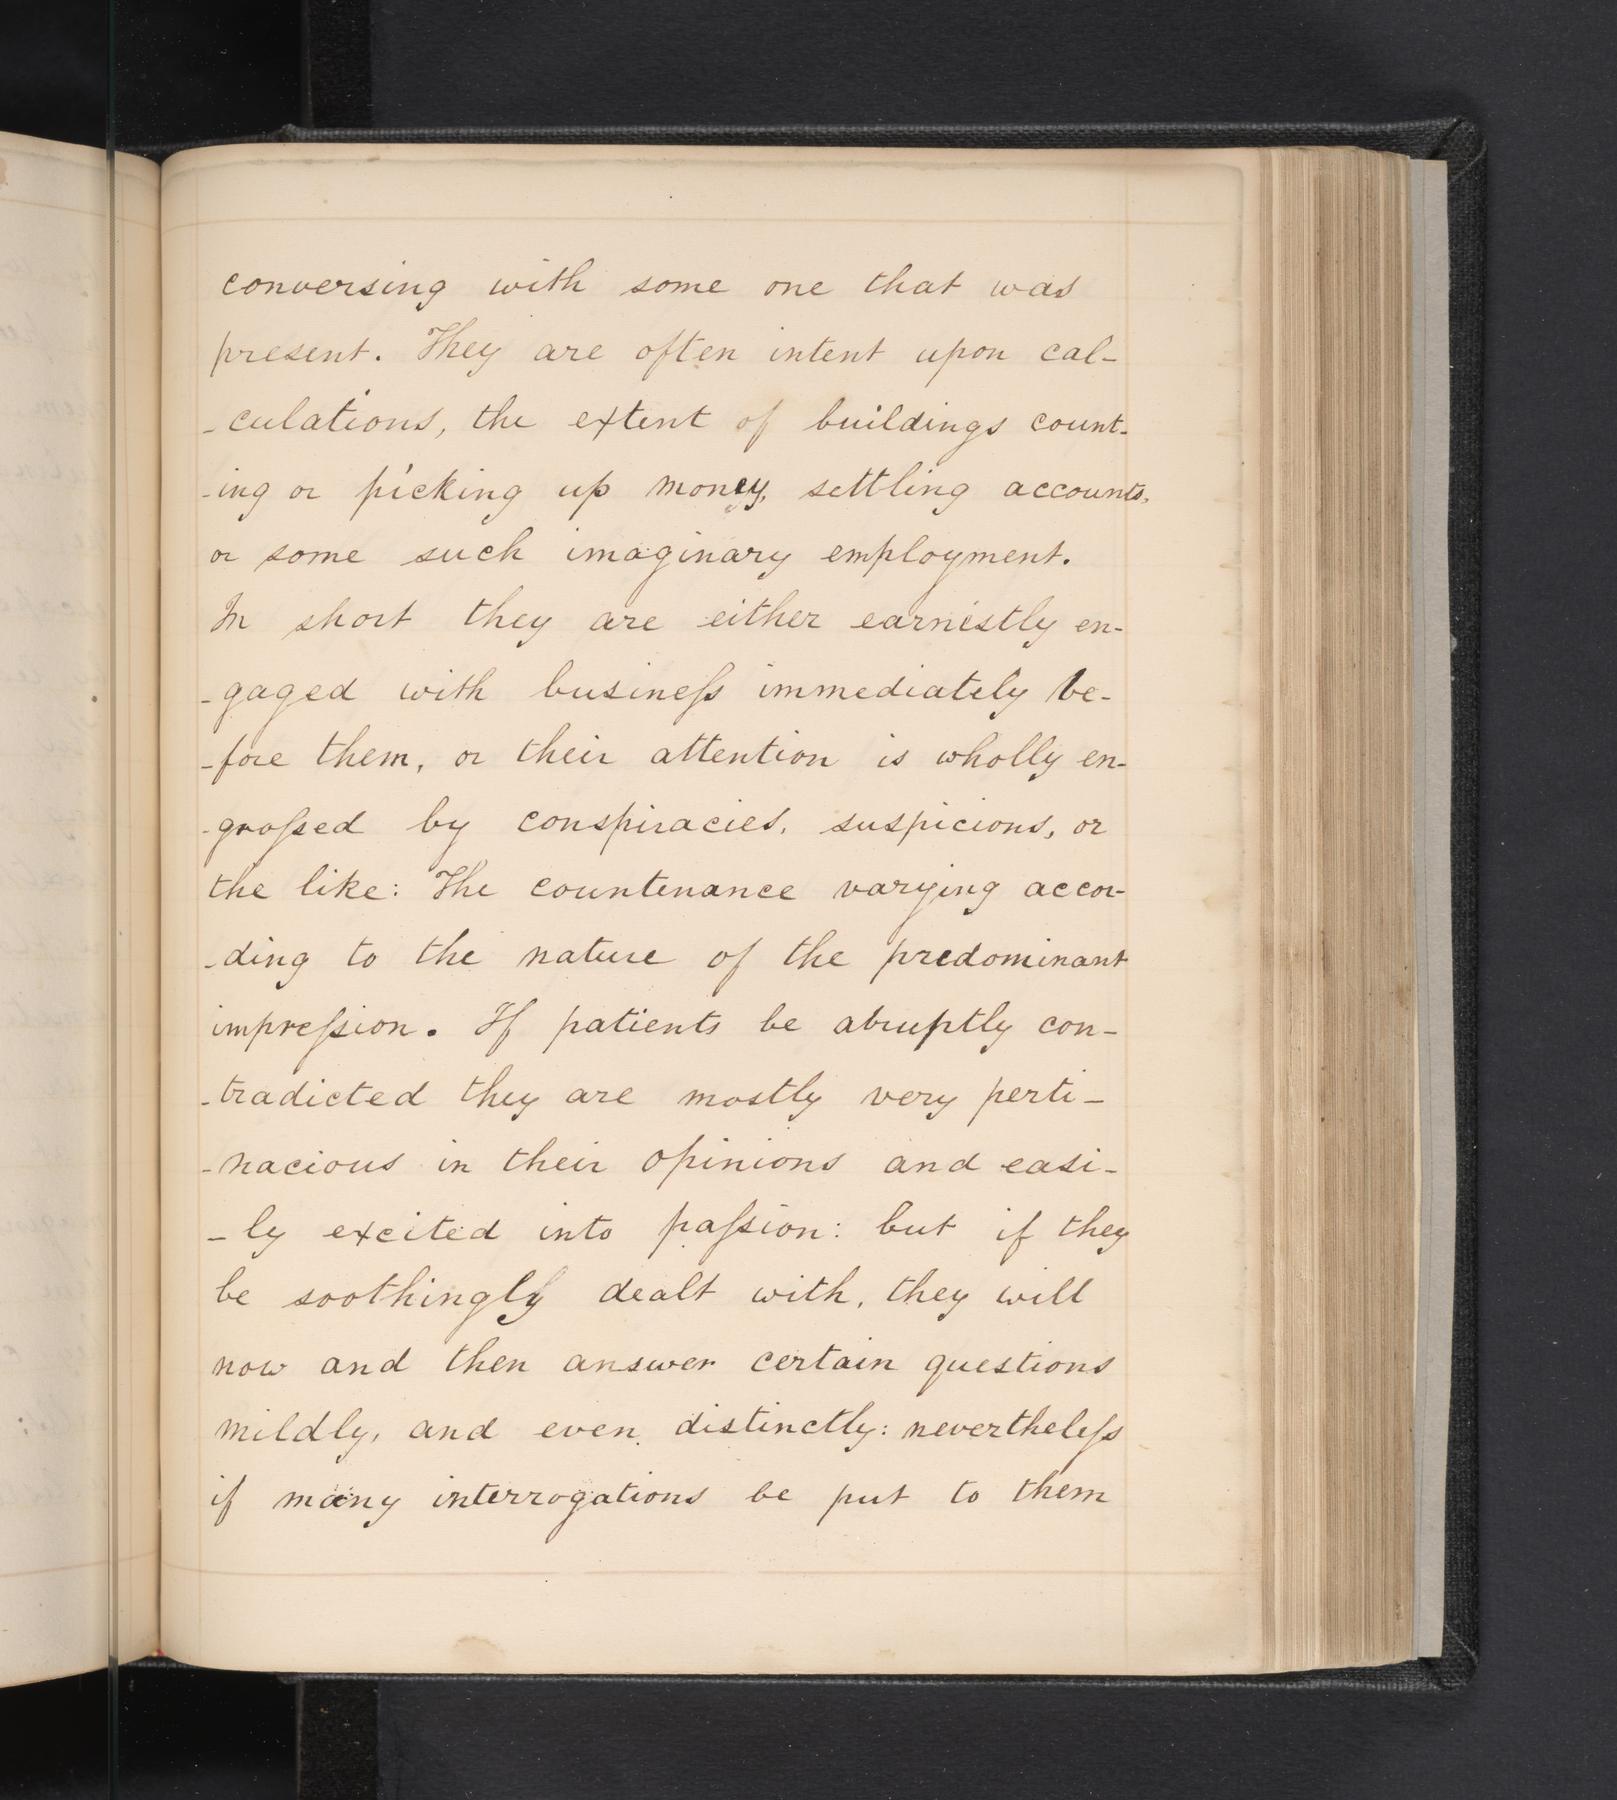 conversing with some one that was
present. They are often intent upon cal-
-culations, the extent of buildings count-
-ing or picking up money, settling accounts,
or some such imaginary employment.
In short they are either earnestly en-
-gaged with busineſs immediately be-
-fore them, or their attention is wholly en-
-groſsed by conspiracies, suspicions, or
the like: The countenance varying accor-
-ding to the nature of the predominant
impreſsion. If patients be abruptly con-
-tradicted they are mostly very perti-
-nacious in their opinions and easi-
-ly excited into paſsion: but if they
be soothingly dealt with, they will
now and then answer certain questions
mildly, and even distinctly: nevertheleſs
if many interrogations be put to them